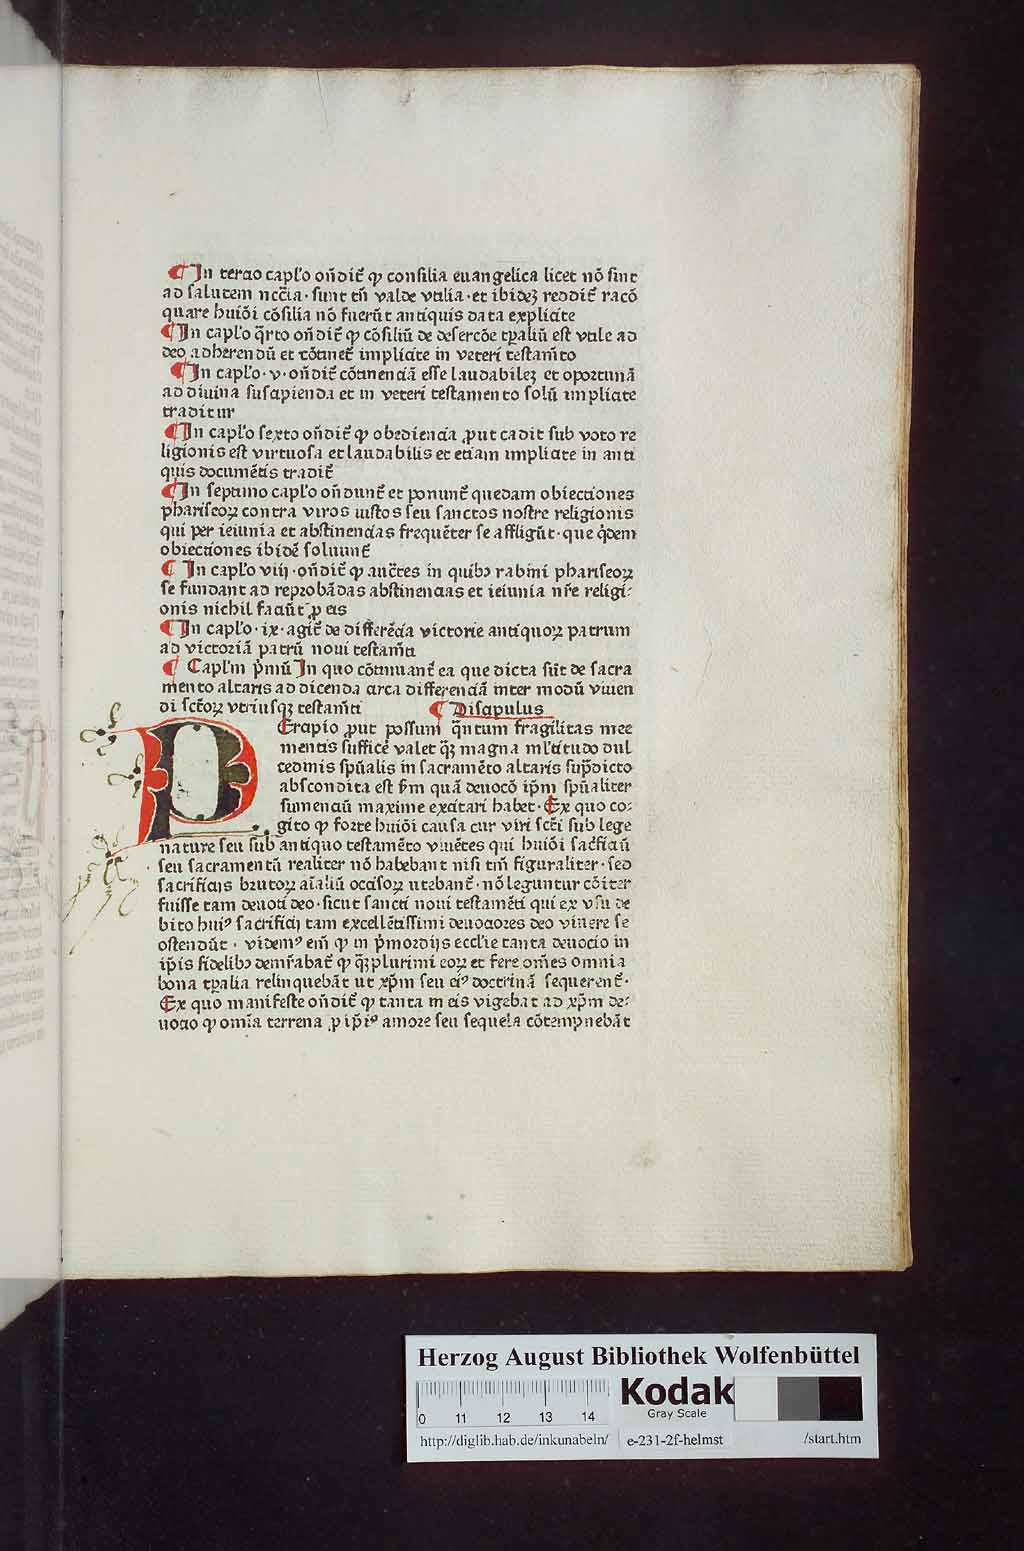 ¶ In tercio capło on̄dit᷑ ꝙ consilia euangelica licet nō sint
ad salutem nccīa · sunt tn̄ valde vtilia · et ibidez reddit᷑ racō
quare huiōi cōsilia nō fuerūt antiquis data explicite
¶ In capło q̄rto on̄dit᷑ ꝙ cōsiliū de desercōe tꝑaliū est vtile ad
deo adherendū et cōtinet᷑ implicite in veteri testam̄to
¶ In capło · v · on̄dit᷑ cōtinenciā esse laudabilez et oportunā
ad diuina suscipienda et in veteri testamento solū implicite
traditur
¶ In capło sexto on̄dit᷑ ꝙ obediencia ꝓut cadit sub voto re
ligionis est virtuosa et laudabilis et etiam implicite in anti
quis documētis tradit᷑
¶ In septimo capło on̄dunt᷑ et ponunt᷑ quedam obiectiones
phariseoꝝ contra viros iustos seu sanctos nostre religionis
qui per ieiunia et abstinencias frequēter se affligūt · que q̇dem
obiectiones ibidē soluunt᷑
¶ In capło viij · on̄dit᷑ ꝙ auc̄tes in quibꝰ rabini phariseoꝝ
se fundant ad reprobādas abstinencias et ieiunia nr̄e religi-
onis nichil faciūt ꝓ eis
¶ In capło · ix · agit᷑ de differēcia victorie antiquoꝝ patrum
ad victoriā patrū noui testam̄ti
¶ Capłm p̄mū In quo cōtinuant᷑ ea que dicta sūt de sacra
mento altaris ad dicenda circa differenciā inter modū viuen
di sc̄toꝝ vtriusqꝫ testam̄ti ¶ Discipulus
PErcipio ꝓut possum q̄ntum fragilitas mee
mentis suffice᷑ valet qꝫ magna ml̄titudo dul
cedinis sp̄ualis in sacramēto altaris sup̄dicto
abscondita est s̄m quā deuocō ip̄m sp̄ualiter
sumenciū maxime excitari habet · Ex quo co-
gito ꝙ forte huiōi causa cur viri sc̄ti sub lege
nature seu sub antiquo testamēto viuētes qui huiōi sac̄ficiū
seu sacramentū realiter nō habebant nisi tm̄ figuraliter · sed
sacrificijs brutoꝝ aīaliū occisoꝝ utebant᷑ · nō leguntur cōiter
fuisse tam deuoti deo · sicut sancti noui testamēti qui ex vsu de
bito huiꝰ sacrificij tam excellētissimi deuociores deo viuere se
ostendūt · videmꝰ em̄ ꝙ in p̄mordijs eccl̄ie tanta deuocio in
ip̄is fidelibꝰ demr̄abat᷑ ꝙ qꝫplurimi eoꝝ et fere om̄es omnia
bona tꝑalia relinquebāt ut xp̄m seu eiꝰ doctrinā sequerent᷑ ·
Ex quo manifeste on̄dit᷑ ꝙ tanta in eis vigebat ad xp̄m de-
uocio ꝙ omīa terrena ꝓ ip̄iꝰ amore seu sequela cōtempnebāt
Herzog August Bibliothek Wolfenbüttel
0 11 12 13 14
Kodak
Gray Scale
http://diglib.hab.de/inkunabeln/ e-231-2f-helmst /start.htm